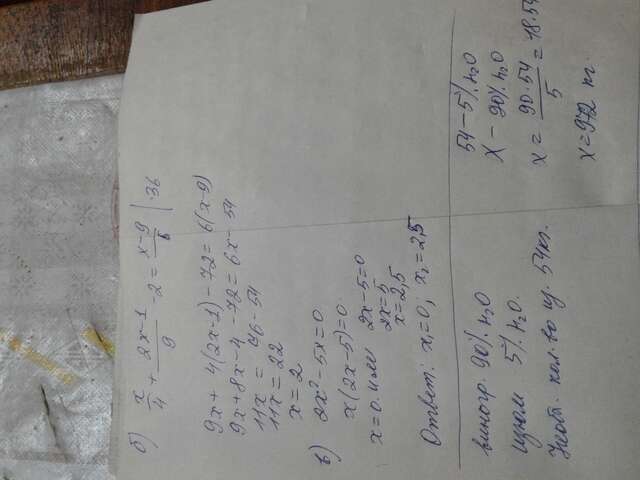 б) x/4 + (2x-1)/9 - 2 = (x-9)/6 | ·36
9x + 4(2x-1) - 72 = 6(x-9)
9x + 8x - 4 - 72 = 6x - 54
11x = 76 - 54
11x = 22
x = 2
в) 2x² - 5x = 0
x(2x-5) = 0
x = 0 или 2x - 5 = 0
2x = 5
x = 2,5
Ответ: x₁ = 0; x₂ = 2,5
виногр. 90% H₂O
изюм 5% H₂O.
Необх. кол. во из. 54 кг.
54 - 5% H₂O
X - 90% H₂O
x = (90·54)/5 = 18·54
x = 972 кг.